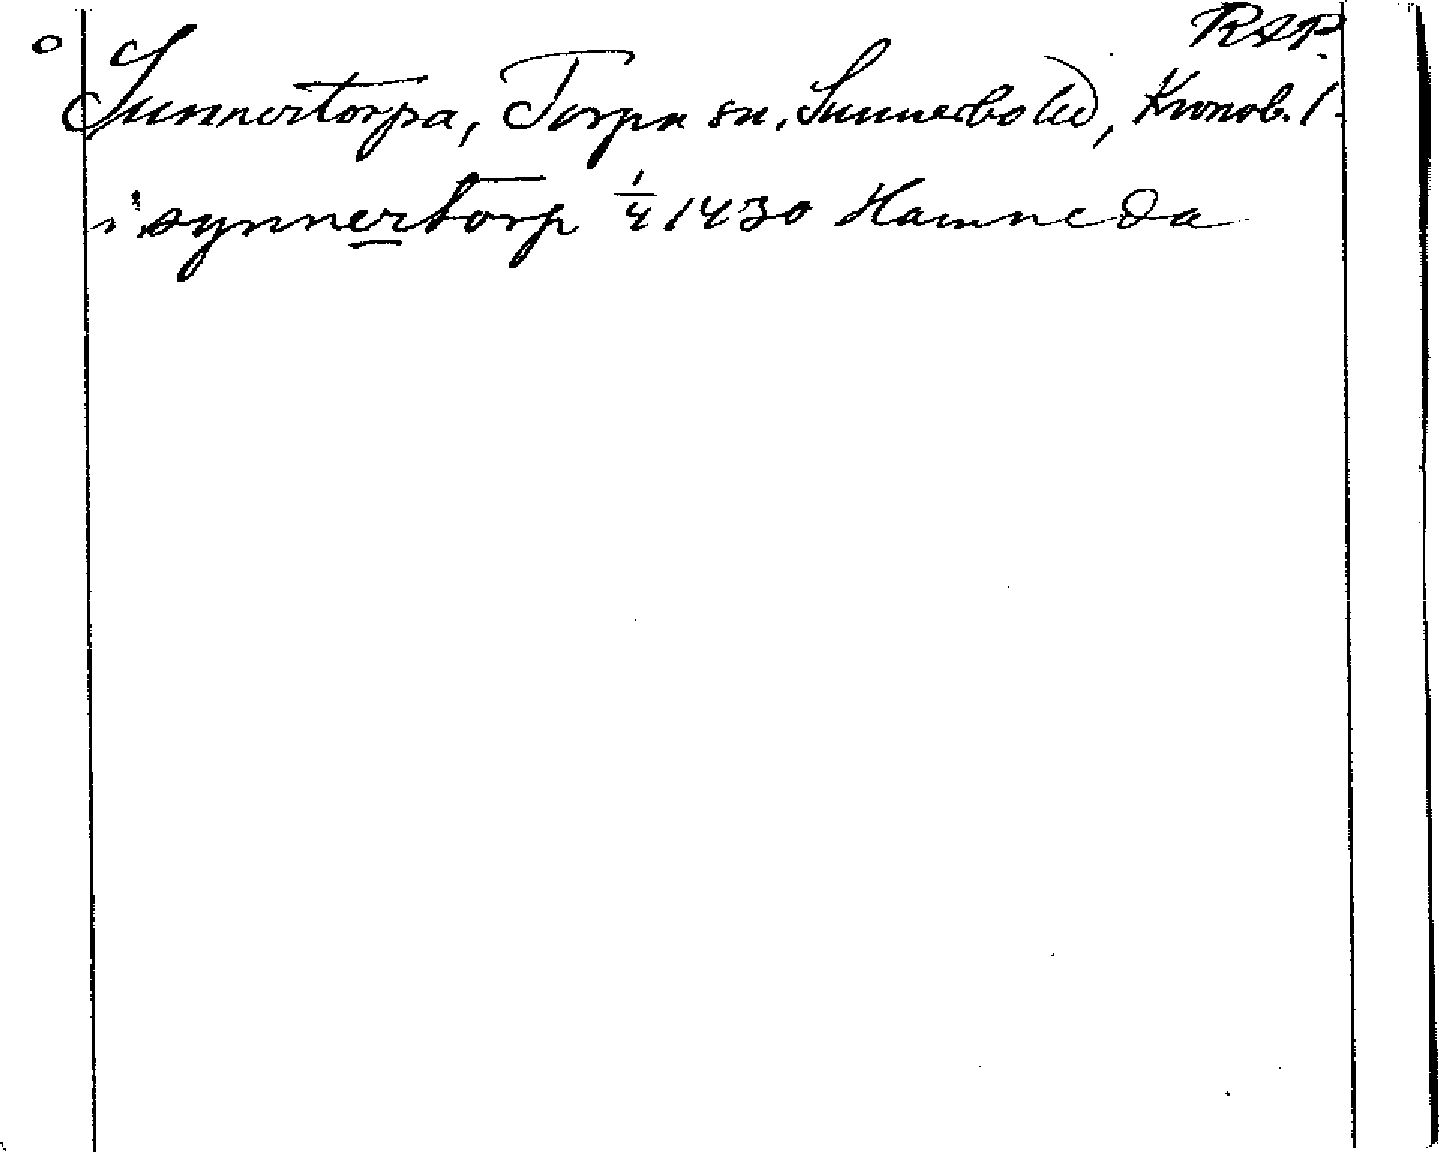 RAP.
Sunnertorpa, Torpa sn. Sunnerbo hd, Kronob. l.
i synnertorp 1/4 1430 Hamneda